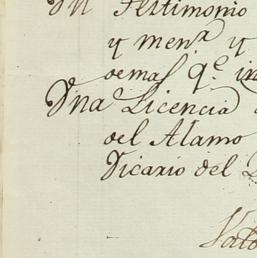 Un Testimonio
y men.ª y
demas q.e in
Una Licencia
del Alamo
Vicario del